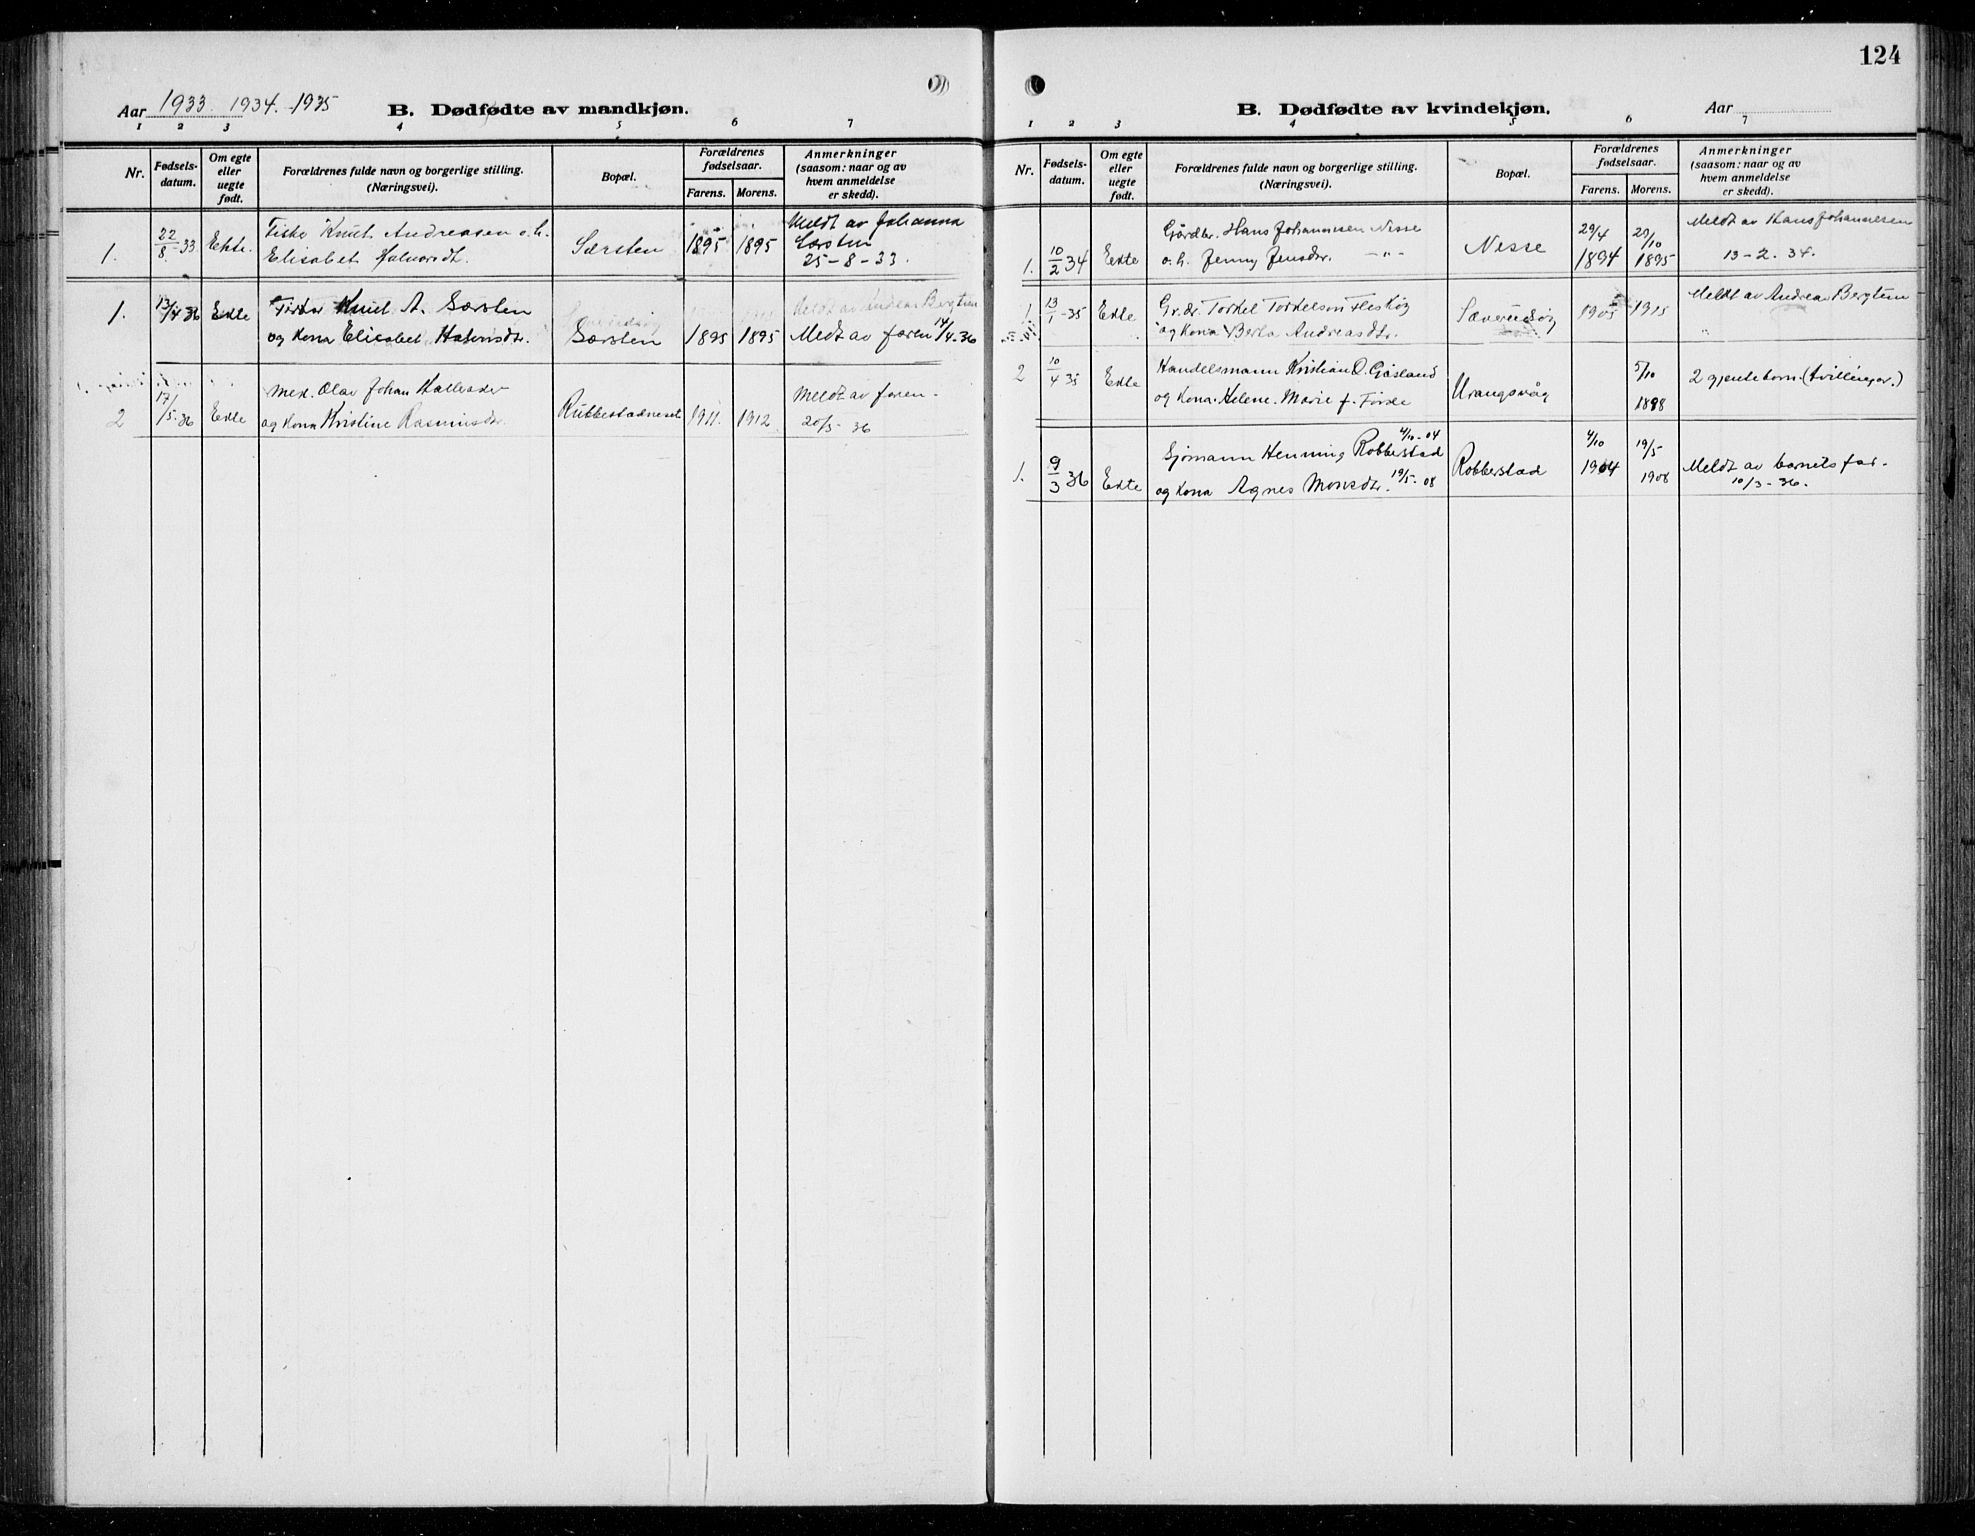 Aar 1933. 1934. -1935
B. Dødfødte av mandkjøn.
1 2 3 4 5 6 7
Nr.
Fødsels-
datum.
Om egte
eller
uegte
født.
Forældrenes fulde navn og borgerlige stilling.
(Næringsvei).
Bopæl.
Forældrenes
fødselsaar.
Farens. Morens.
Anmerkninger
(saasom: naar og av
hvem anmeldelse
er skedd).
1.
22/8-33
Ekte.
Fisker Knut Andreasen o.h.
Elisabet Halvorsdt.
Særsten
1895 1895
Meldt av Johanna
Særsten
25-8-33.
1.
13/4 36
Ekte
Fisker Knut A. Særsten
og Kona Elisabet
Særsten
1895 1895
Meldt av Andreas Bergtun
Medt av faren 14/4-36
2
17/5-36
Ekte
Mek. Olav Johan
og Kona Kristine Rasmusdtr.
Rubbestadneset
1911. 1912.
Meldt av faren-
20/5-36
124
B. Dødfødte av kvindekjøn.
Aar
1 2 3 4 5 6 7
Nr.
Fødsels-
datum.
Om egte
eller
uegte
født.
Forældrenes fulde navn og borgerlige stilling.
(Næringsvei).
Bopæl.
Forældrenes
fødselsaar.
Farens. Morens.
Anmerkninger
(saasom: naar og av
hvem anmeldelse
er skedd).
1.
10/2 34
Ekte
Gårdbr. Hans Johannesen Nesse
o.h. Jenny Jensdtr. -"-
Nesse
29/4 1894
20/10 1895
Meldt av Hans Johannesen
13-2.34.
1
13/1-35
Ekte
Gr.br. Torkel Torkelson
og Kona Berta Andreasdtr.
1905 1915
Meldt av Andreas Bergtun
2
10/4 35
Ekte
Handelsmann Kristian O. Gåsland
og Kona Helene Marie f. Førde
Urangsvåg
5/10
1898
2 gjenteborn. (tvillingar.)
1.
9/3 36
Ekte
Sjømann Henning Robberstad 4/10-04
og Kona Agnes Monsdtr. 19/5-08
Robberstad
4/10 1904
19/5 1908
Meldt av barnets far-
10/3-36.